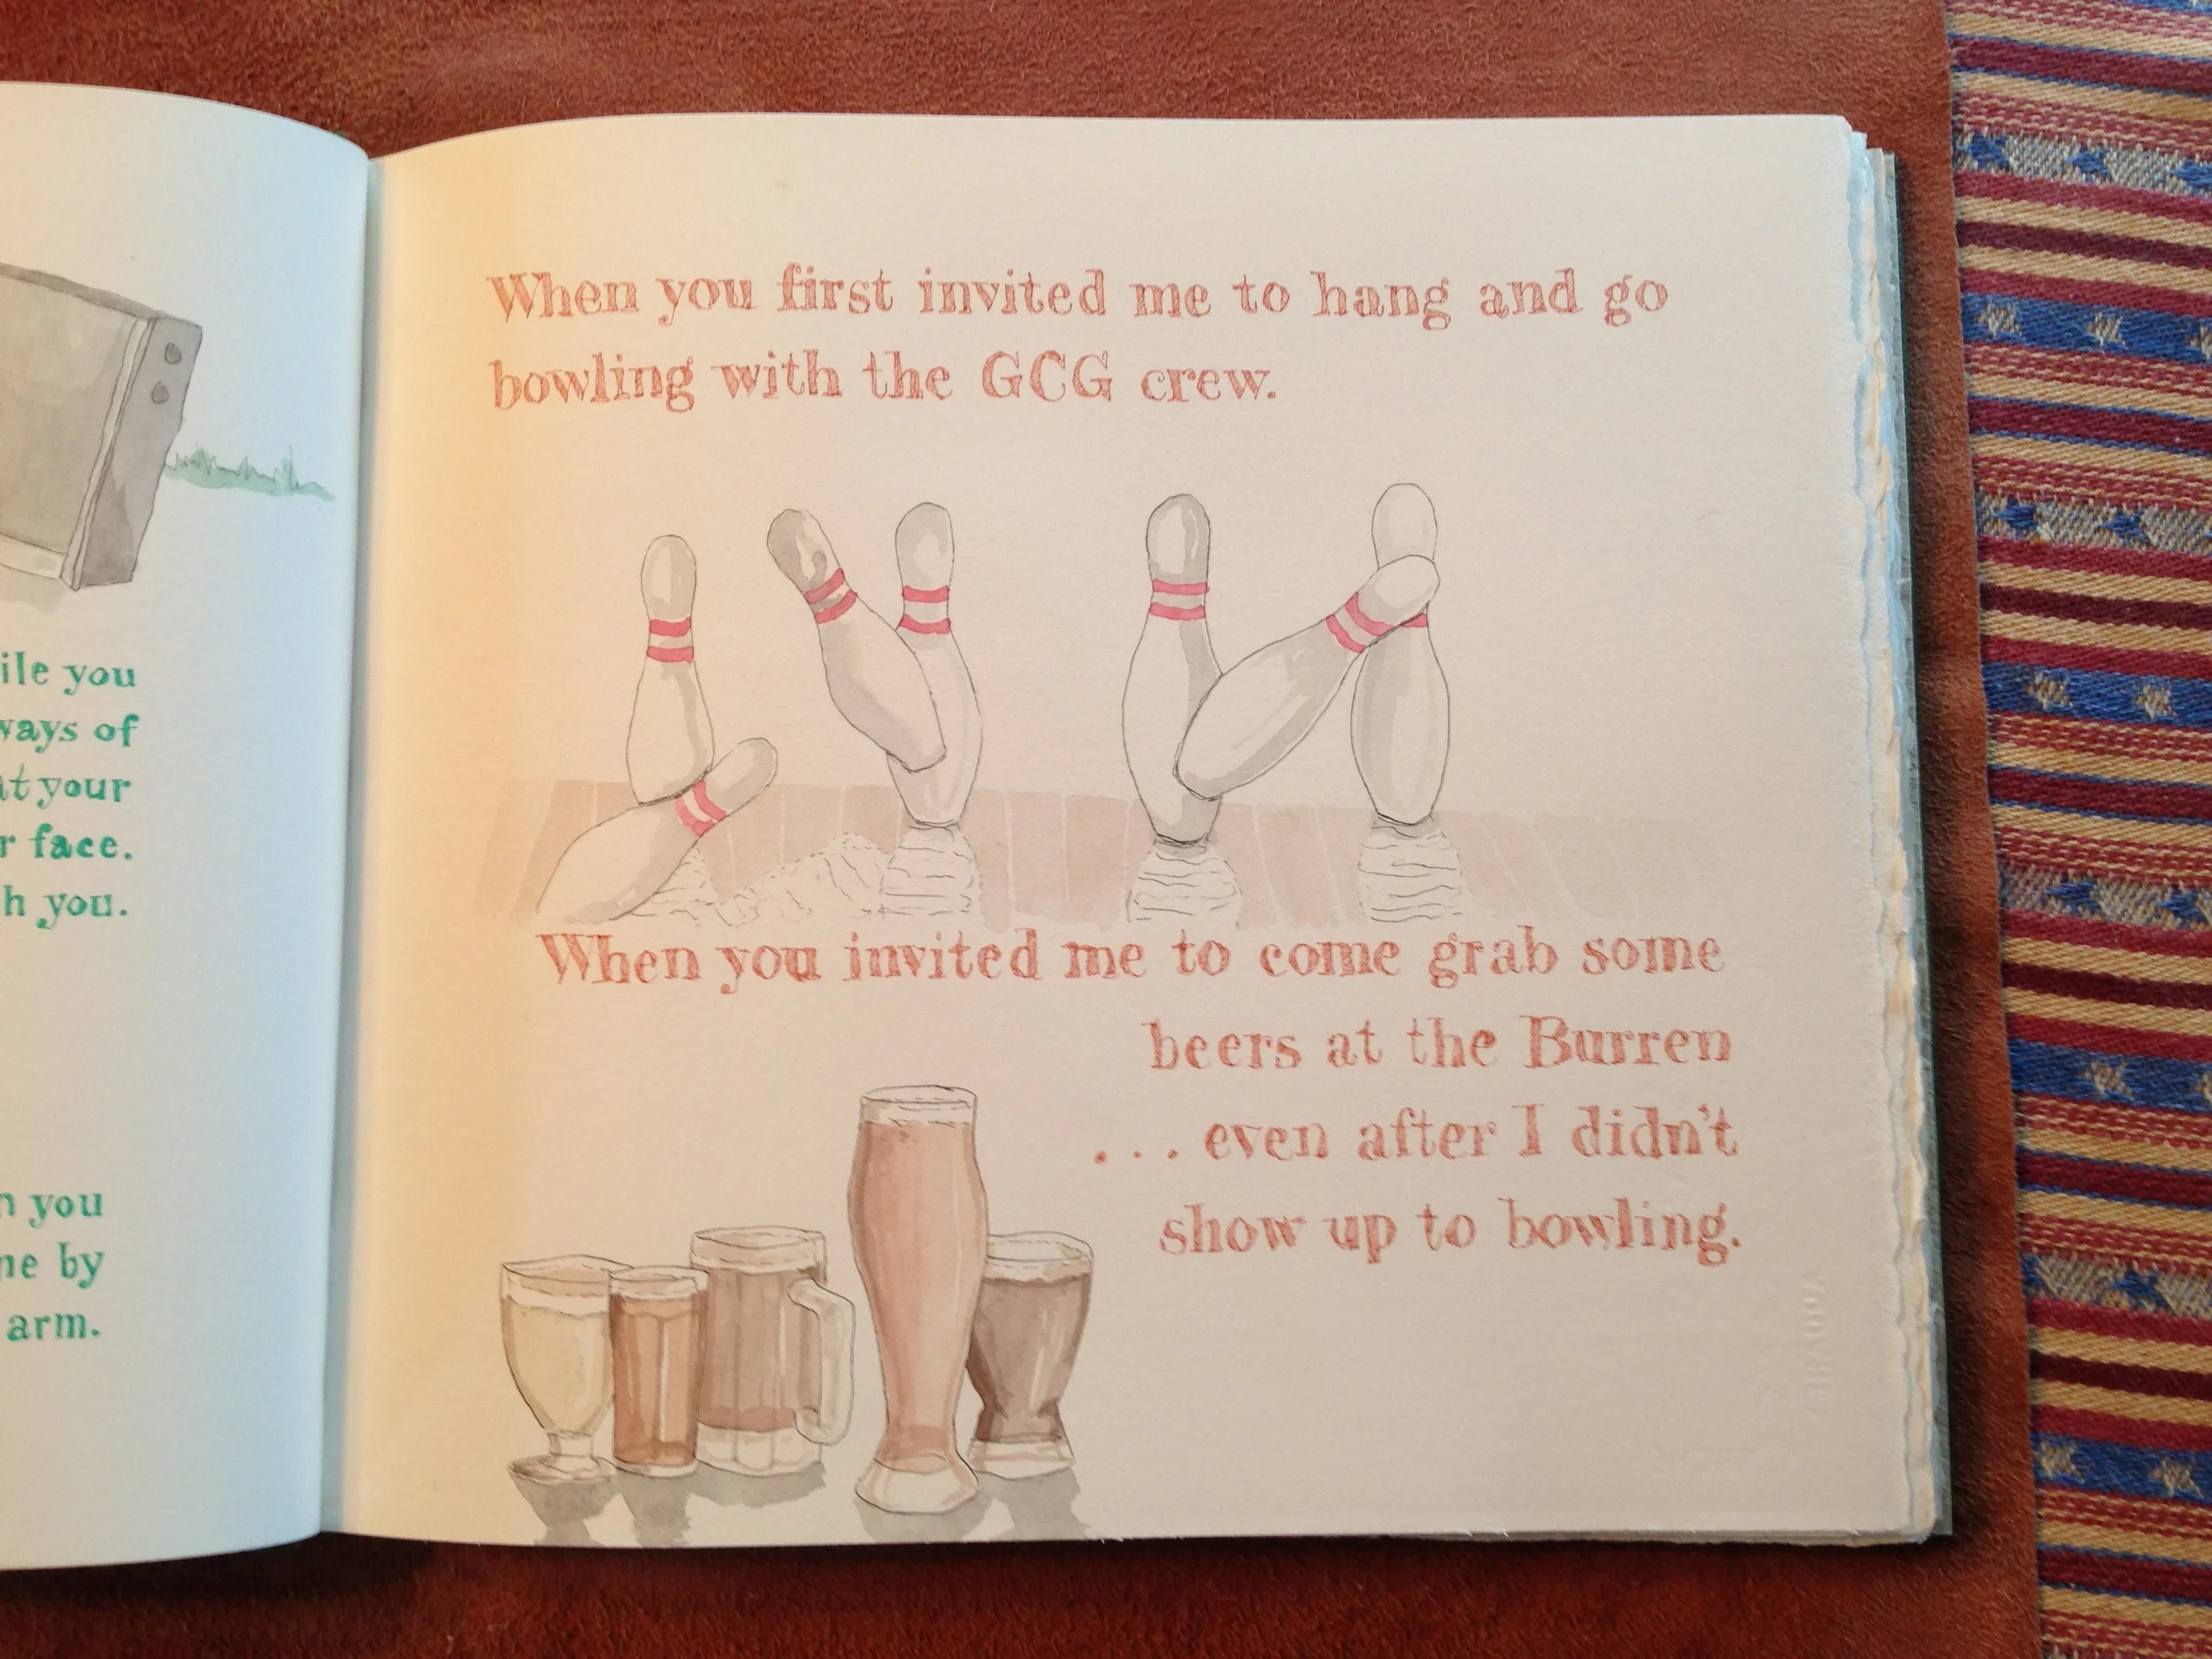 ile you
ways of
at your
r face.
h you.
n you
ne by
arm.
When you first invited me to hang and go
bowling with the GCG crew.
When you invited me to come grab some
beers at the Burren
... even after I didn't
show up to bowling.